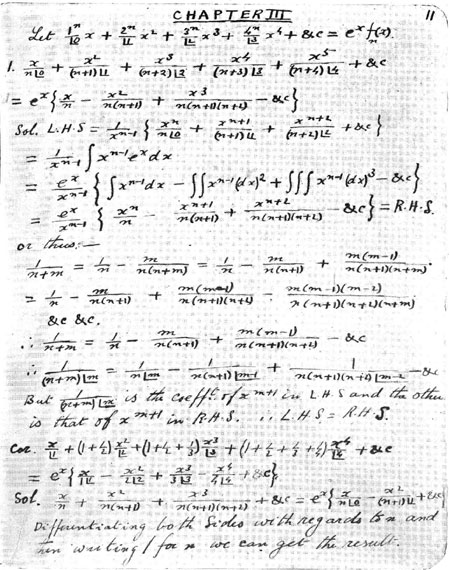 CHAPTER III
11
Let 1^n/⌊0 x + 2^n/⌊1 x² + 3^n/⌊2 x³ + 4^n/⌊3 x⁴ + &c = e^x f_n(x).
1. x/(n⌊0) + x²/((n+1)⌊1) + x³/((n+2)⌊2) + x⁴/((n+3)⌊3) + x⁵/((n+4)⌊4) + &c
= e^x { x/n − x²/(n(n+1)) + x³/(n(n+1)(n+2)) − &c }
Sol. L.H.S = 1/x^(n-1) { x^n/(n⌊0) + x^(n+1)/((n+1)⌊1) + x^(n+2)/((n+2)⌊2) + &c }
= 1/x^(n-1) ∫ x^(n-1) e^x dx
= e^x/x^(n-1) { ∫ x^(n-1) dx − ∫∫ x^(n-1) (dx)² + ∫∫∫ x^(n-1) (dx)³ − &c }
= e^x/x^(n-1) { x^n/n − x^(n+1)/(n(n+1)) + x^(n+2)/(n(n+1)(n+2)) − &c } = R.H.S.
or thus:—
1/(n+m) = 1/n − m/(n(n+m)) = 1/n − m/(n(n+1)) + m(m-1)/(n(n+1)(n+m)).
= 1/n − m/(n(n+1)) + m(m-1)/(n(n+1)(n+2)) − m(m-1)(m-2)/(n(n+1)(n+2)(n+m))
&c &c.
∴ 1/(n+m) = 1/n − m/(n(n+1)) + m(m-1)/(n(n+1)(n+2)) − &c
∴ 1/((n+m)⌊m) = 1/(n⌊m) − 1/(n(n+1)⌊m-1) + 1/(n(n+1)(n+2)⌊m-2) − &c
But 1/((n+m)⌊m) is the coefft. of x^(m+1) in L.H.S and the other
is that of x^(m+1) in R.H.S. ∴ L.H.S = R.H.S.
Cor. x/⌊1 + (1+½) x²/⌊2 + (1+½+⅓) x³/⌊3 + (1+½+⅓+¼) x⁴/⌊4 + &c
= e^x { x/(1⌊1) − x²/(2⌊2) + x³/(3⌊3) − x⁴/(4⌊4) + &c }.
Sol. x/n + x²/(n(n+1)) + x³/(n(n+1)(n+2)) + &c = e^x { x/(n⌊0) − x²/((n+1)⌊1) + &c }
Differentiating both sides with regards to n and
then writing 1 for n we can get the result.